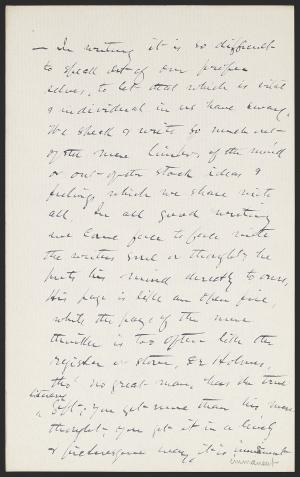 — In writing it is so difficult
to speak out of our proper
selves, to let that which is vital
& individual in us have sway.
We speak & write so much out
of the mere limbo of the mind
or out of the stock ideas &
feelings which we share with
all. In all good writing
we come face to face with
the writers soul or thought; he
puts his mind directly to ours,
His page is like an open fire,
while the page of the mere
thinker is too often like the
register or stove. Dr Holmes,
tho' no great man, has the true
literary
gift; you get more than his mere
thought; you get it in a lively
& picturesque way, it is imminent
immanent